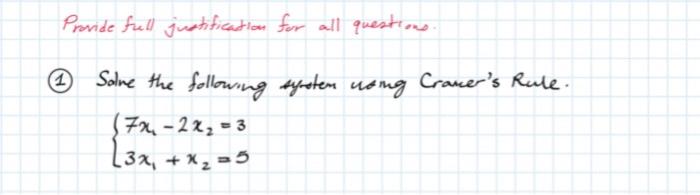 Provide full justification for all questions.
① Solve the following system using Cramer's Rule.
7x₁ - 2x₂ = 3
3x₁ + x₂ = 5